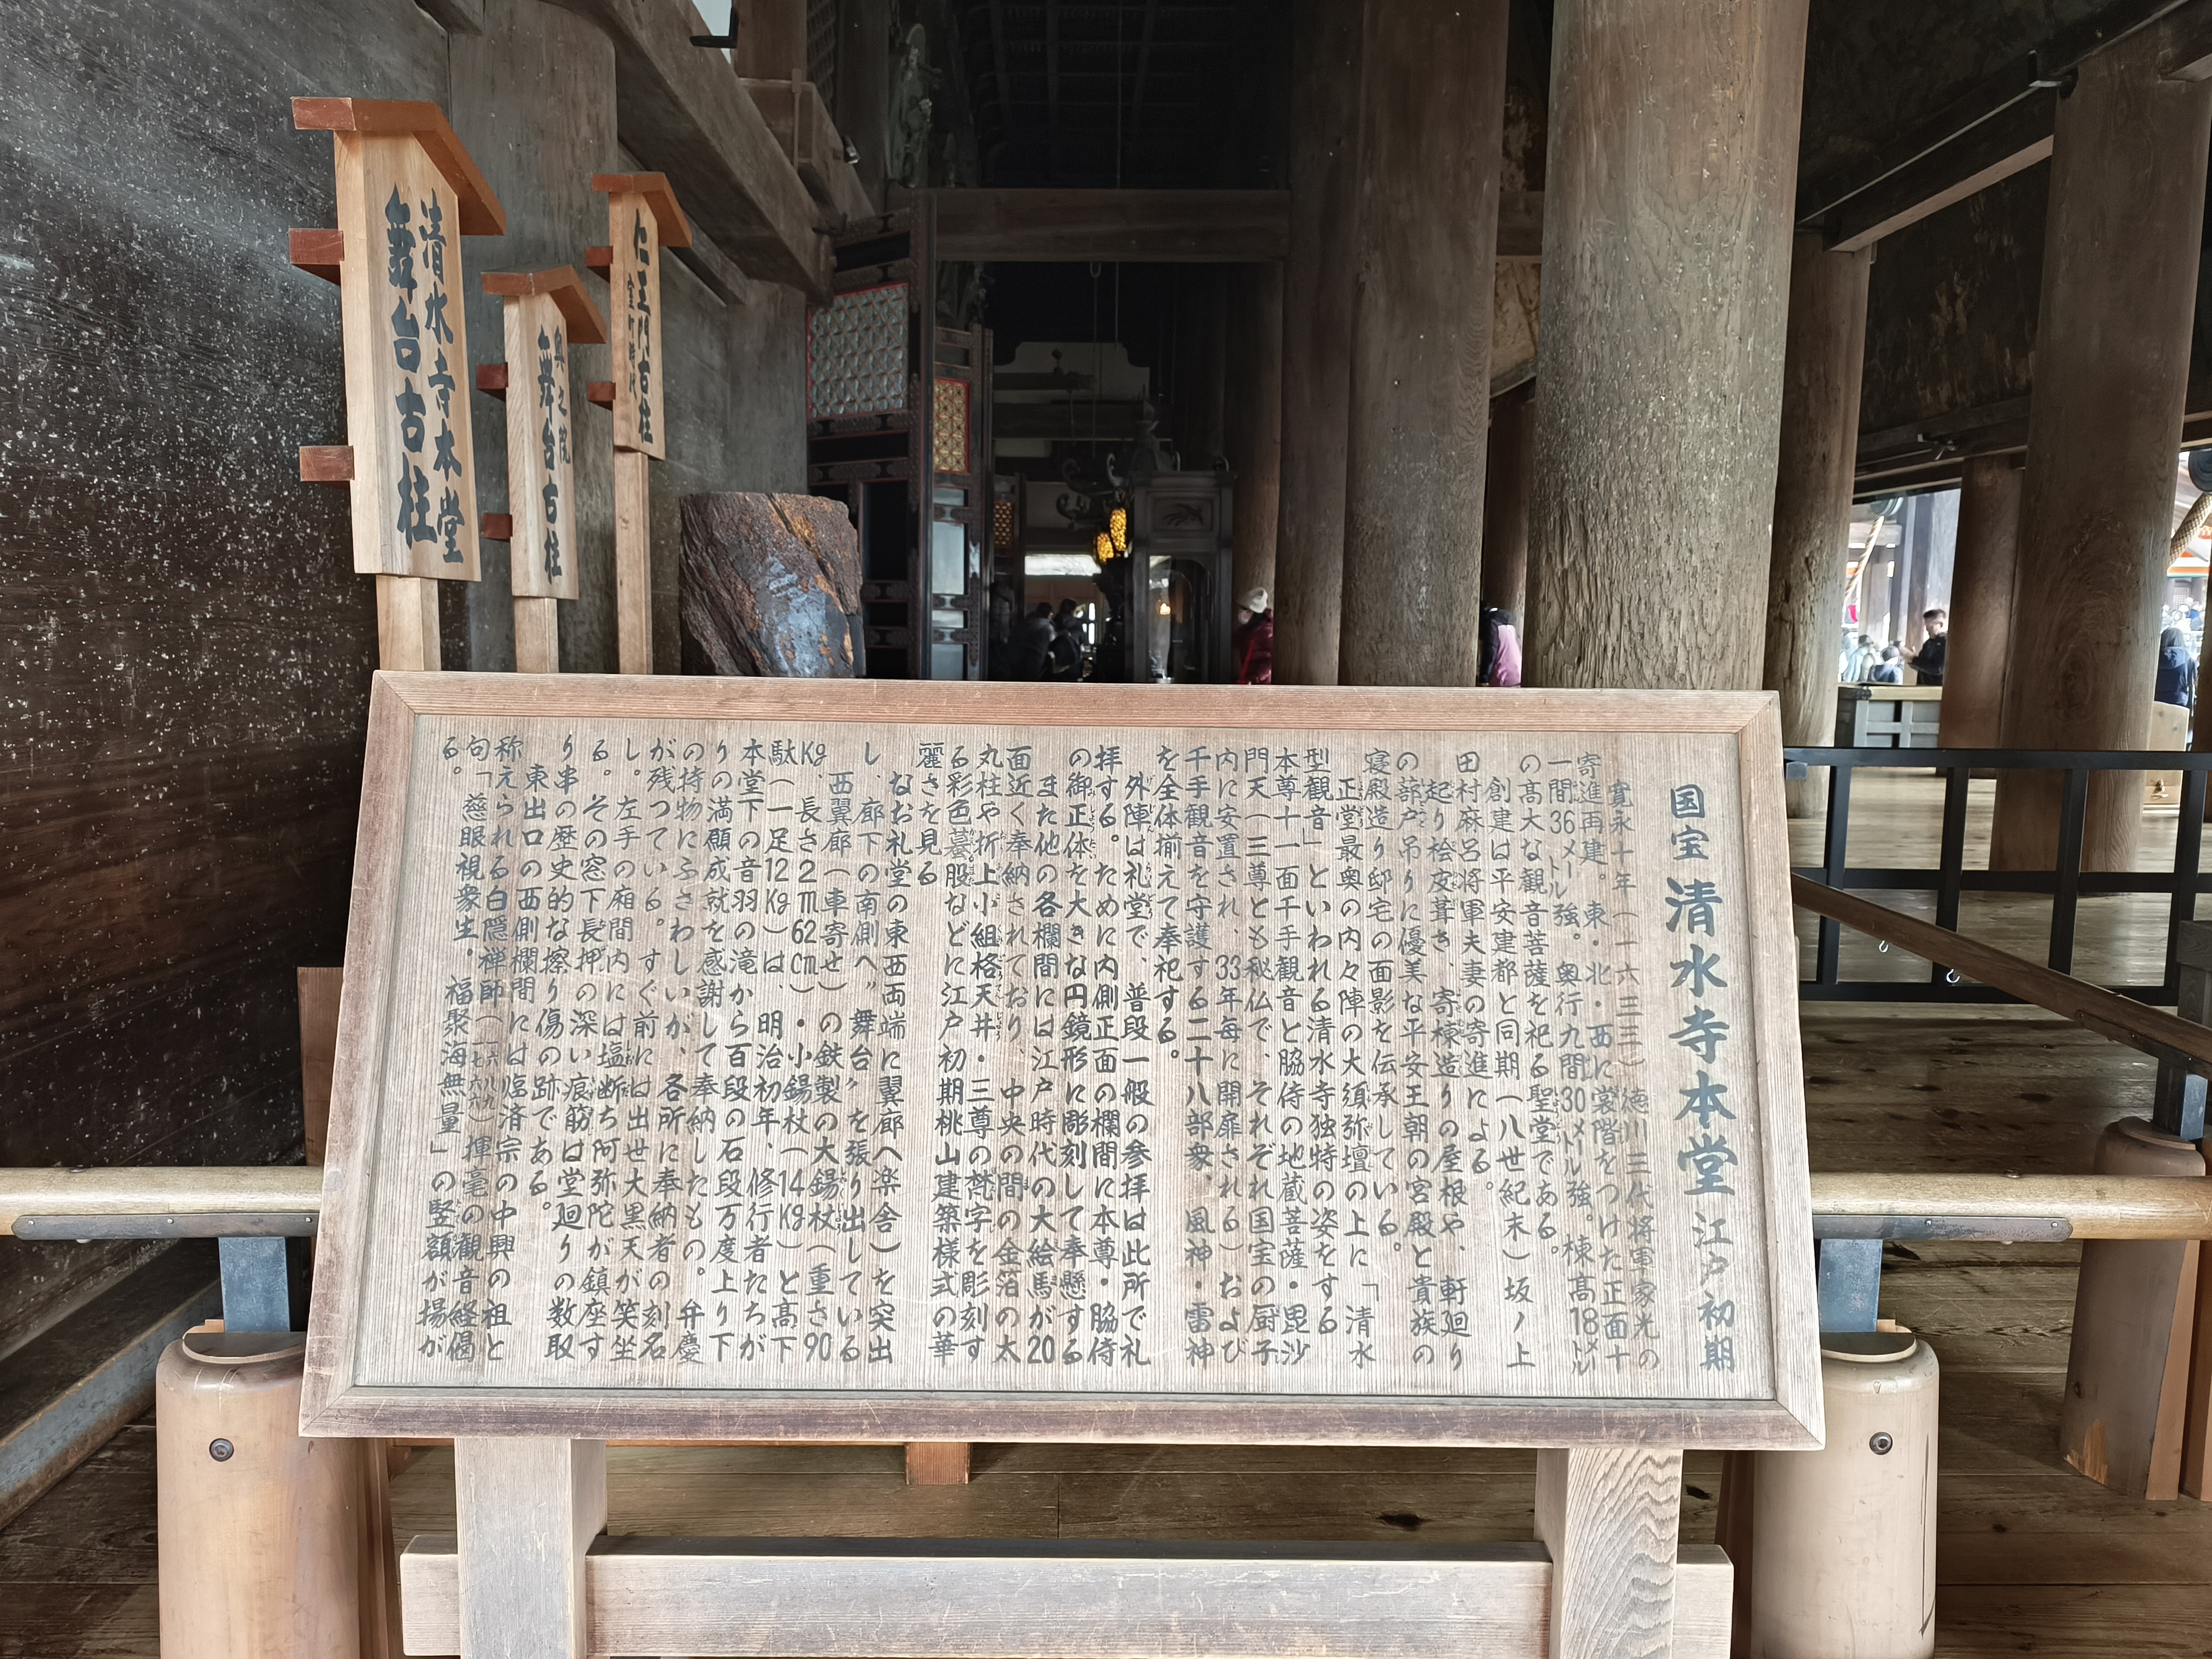 清水寺本堂
舞台古柱
奥之院
舞台古柱
仁王門古柱
室町時代
国宝 清水寺本堂 江戸初期
寛永十年(一六三三)徳川三代将軍家光の
寄進再建。東・北・西に裳階をつけた正面十
一間36メートル強。奥行九間30メートル強。棟高18メートル
の髙大な観音菩薩を祀る聖堂である。
創建は平安建都と同期(八世紀末)坂ノ上
田村麻呂将軍夫妻の寄進による。
起り桧皮葺き、寄棟造りの屋根や、軒廻り
の蔀戸吊りに優美な平安王朝の宮殿と貴族の
寝殿造り邸宅の面影を伝承している。
正堂最奥の内々陣の大須弥壇の上に「清水
型観音」といわれる清水寺独特の姿をする
本尊十一面千手観音と脇侍の地蔵菩薩・毘沙
門天(三尊とも秘仏で、それぞれ国宝の厨子
内に安置され、33年毎に開扉される)および
千手観音を守護する二十八部衆、風神・雷神
を全体揃えて奉祀する。
外陣は礼堂で、普段一般の参拝は此所で礼
拝する。ために内側正面の欄間に本尊・脇侍
の御正体を大きな円鏡形に彫刻して奉懸する
また他の各欄間には江戸時代の大絵馬が20
面近く奉納されており、中央の間の金箔の太
丸柱や折上小組格天井・三尊の梵字を彫刻す
る彩色蟇股などに江戸初期桃山建築様式の華
麗さを見る
なお礼堂の東西両端に翼廊(楽舎)を突出
し、廊下の南側へ〝舞台〟を張り出している
西翼廊(車寄せ)の鉄製の大錫杖(重さ90
Kg、長さ2m62cm)・小錫杖(14Kg)と髙下
駄(一足12Kg)は、明治初年、修行者たちが
本堂下の音羽の滝から百段の石段万度上り下
りの満願成就を感謝して奉納したもの。弁慶
の持物にふさわしいが、各所に奉納者の刻名
が残っている。すぐ前には出世大黒天が笑坐
し。左手の廂間内には塩断ち阿弥陀が鎮座す
る。その窓下長押の深い痕筋は堂廻りの数取
り串の歴史的な擦り傷の跡である。
東出口の西側欄間には臨済宗の中興の祖と
称えられる白隠禅師(一六八六一七六九)揮毫の観音経偈
句「慈眼視衆生・福聚海無量」の竪額が揚が
る。